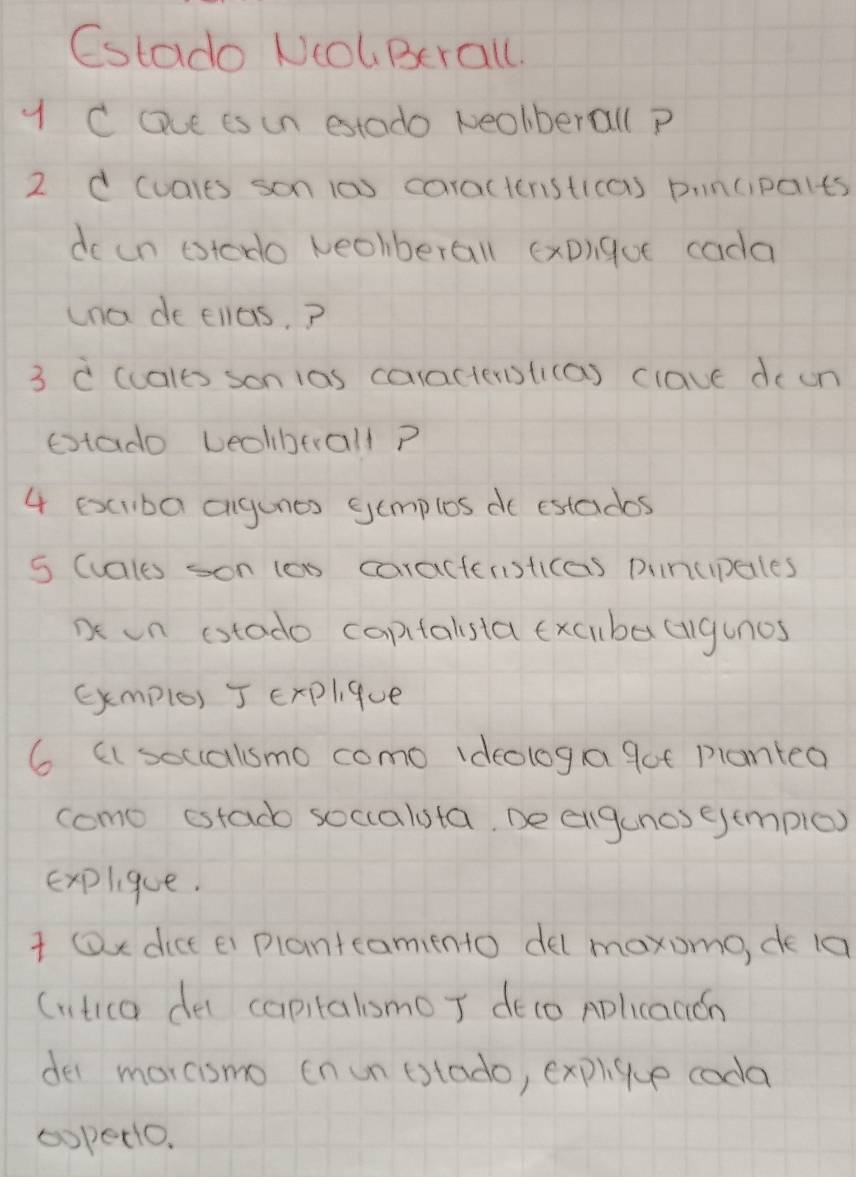 Estado NeoliBerall.
1 ¿ Que es un estado Neoliberall ?
2 ¿ Cuales son las caracteristicas principales
de un estado Neoliberall explique cada
una de ellas. ?
3 ¿ Cuales son las caracteristicas clave de un
estado Leoliberall ?
4 escriba algunos ejemplos de estados
5 Cuales son las caracteristicas principales
De un estado capitalista excriba algunos
ejemplos J explique
6 el socialismo como ideologa que plantea
como estado socialista. De algunos ejemplos
explique.
7 Que dice el planteamiento del maxismo, de la
Critica del capitalismo J de co Aplicación
del marcismo en un estado, explique cada
aspecto.